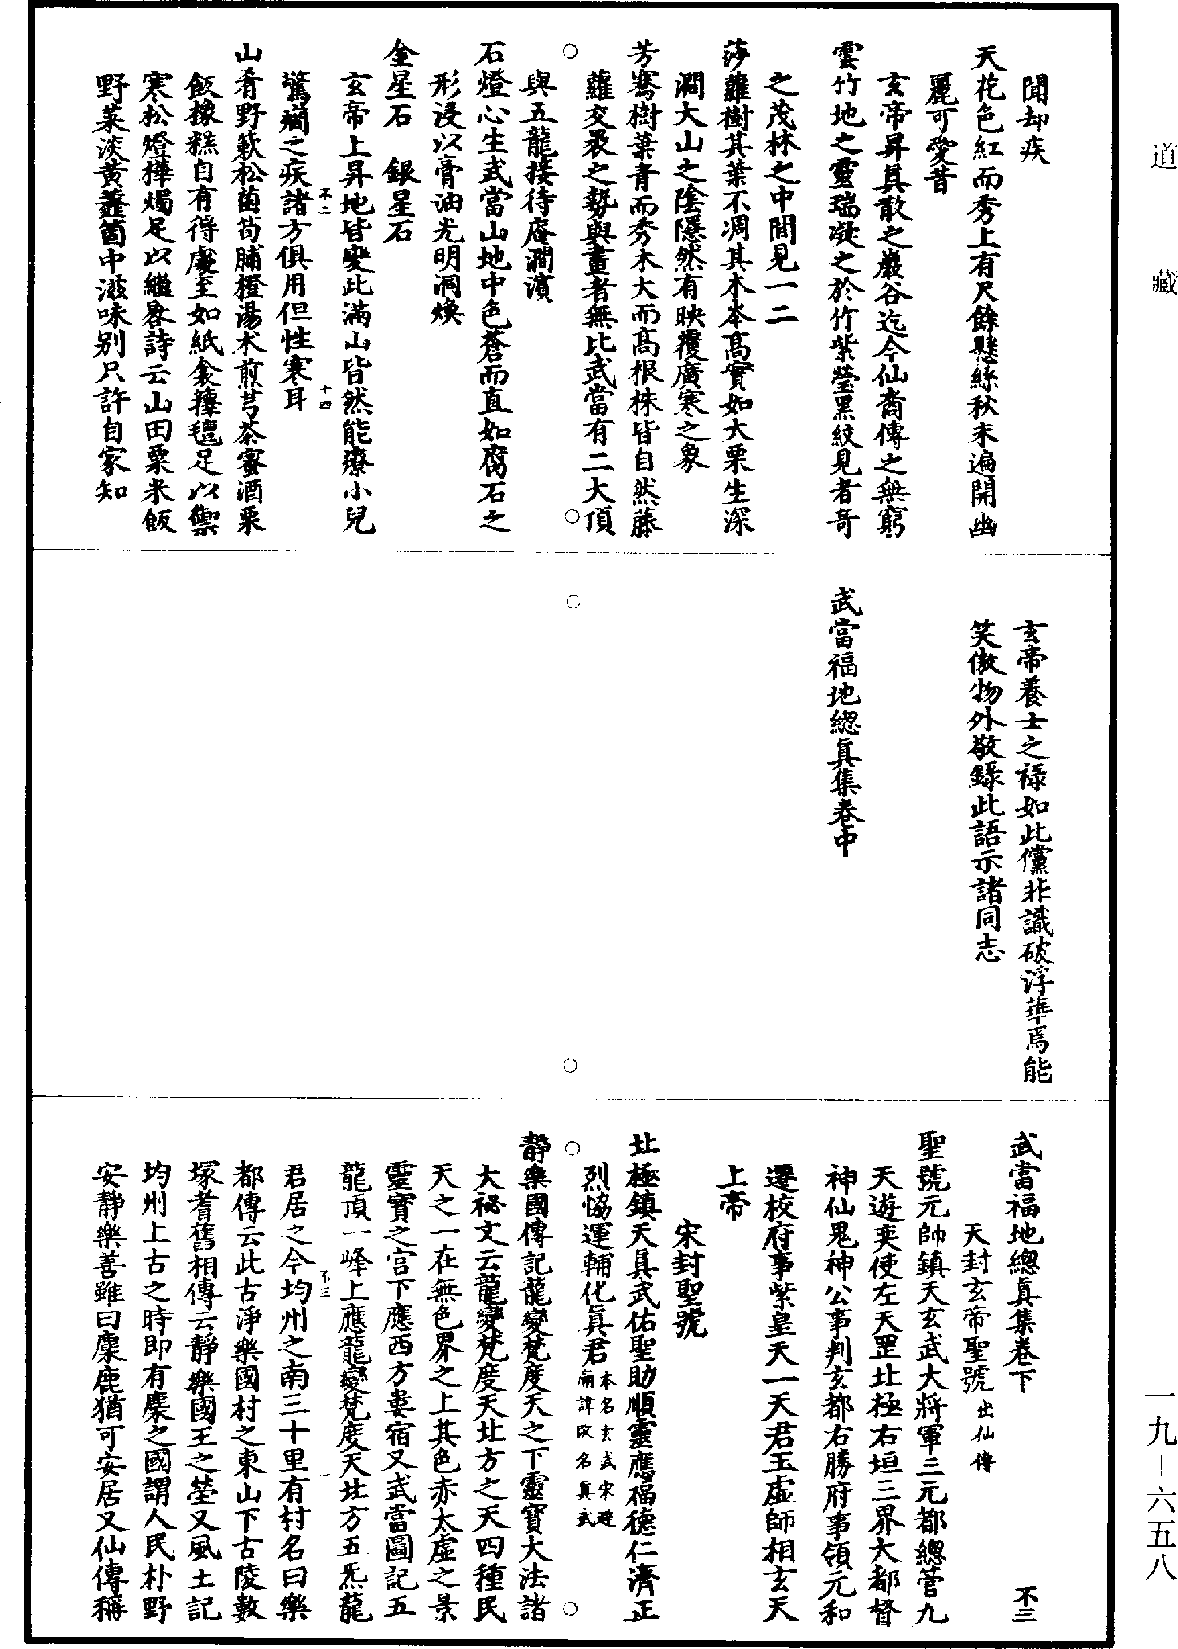 道藏
聞却疾
天花色紅而秀上有尺餘懸絲秋末遍開幽
麗可愛昔
玄帝昇其散之巖谷迄今仙裔傳之無窮
雲竹地之靈瑞凝之於竹紫瑩黑紋見者奇
之茂林之中間見一二
莎蘿樹其葉不凋其木夲高實如大栗生深
澗大山之陰隱然有映覆廣寒之象
芳騫樹葉青而秀木大而高根株皆自然藤
蘿交衮之勢與畫者無比武當有二大頂
與五龍接待庵澗濱
石燈心生武當山地中色蒼而直如腐石之
形浸以膏油光明洞煥
金星石　銀星石
玄帝上昇地皆變此滿山皆然能療小兒
驚癇之疾諸方俱用但性寒耳
不二　十四
山肴野蔌松菌笋脯橙湯朮煎芎茶蜜酒粟
飯橡糕自有得處至如紙衾擁氊足以禦
寒松燈樺燭足以繼晷詩云山田粟米飯
野菜淡黄虀箇中滋味别只許自家知
玄帝養士之祿如此儻非識破浮華焉能
笑傲物外敬錄此語示諸同志
武當福地總真集卷中
武當福地總真集卷下　不三
天封玄帝聖號出仙傳
聖號元帥鎮天玄武大將軍三元都總管九
天遊奕使左天罡北極右垣三界大都督
神仙鬼神公事判玄都右勝府事領元和
遷校府事紫皇天一天君玉虛師相玄天
上帝
宋封聖號
北極鎮天真武佑聖助順靈應福德仁濟正
烈恊運輔化真君本名玄武宋避廟諱改名真武
靜樂國傳記龍變梵度天之下靈寶大法諸
大祕文云龍變梵度天北方之天四種民
天之一在無色界之上其色赤太虛之景
靈寶之宫下應西方婁宿又武當圖記五
龍頂一峰上應龍變梵度天北方五炁龍
君居之今均州之南三十里有村名曰樂
不三
都傳云此古淨樂國村之東山下古陵數
塚耆舊相傳云靜樂國王之塋又風土記
均州上古之時即有麇之國謂人民朴野
安靜樂善雖曰麋鹿猶可安居又仙傳稱
一九－六五八